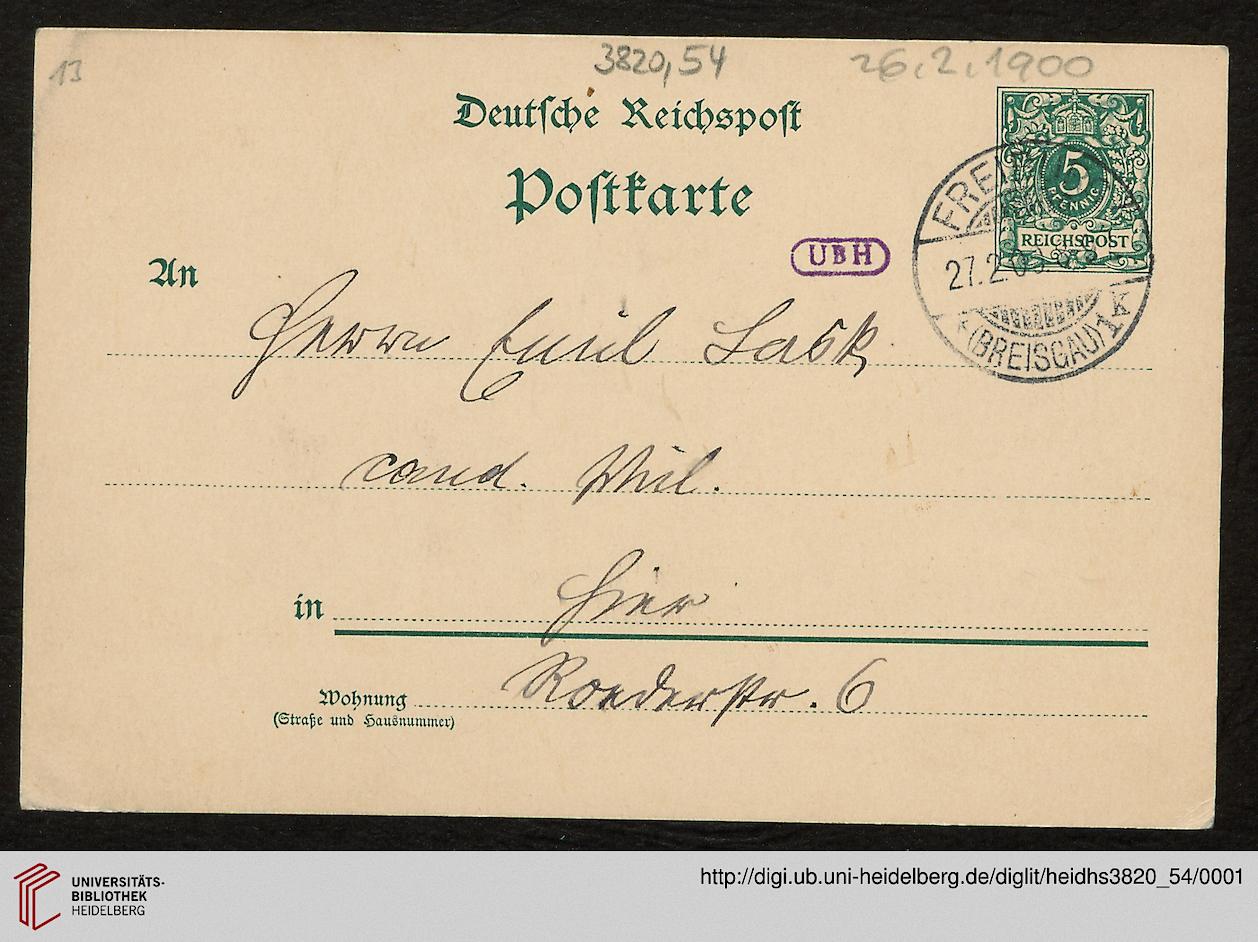 13
3820,54
26.2.1900
Deutsche Reichspost
Postkarte
5
PFENNIG
REICHSPOST
(BREISGAU)
1 K
UBH
An
Herrn Emil Lask
cand. Phil.
in Hier
Wohnung Roederstr. 6
(Straße und Hausnummer)
UNIVERSITÄTS-
BIBLIOTHEK
HEIDELBERG
http://digi.ub.uni-heidelberg.de/diglit/heidhs3820_54/0001